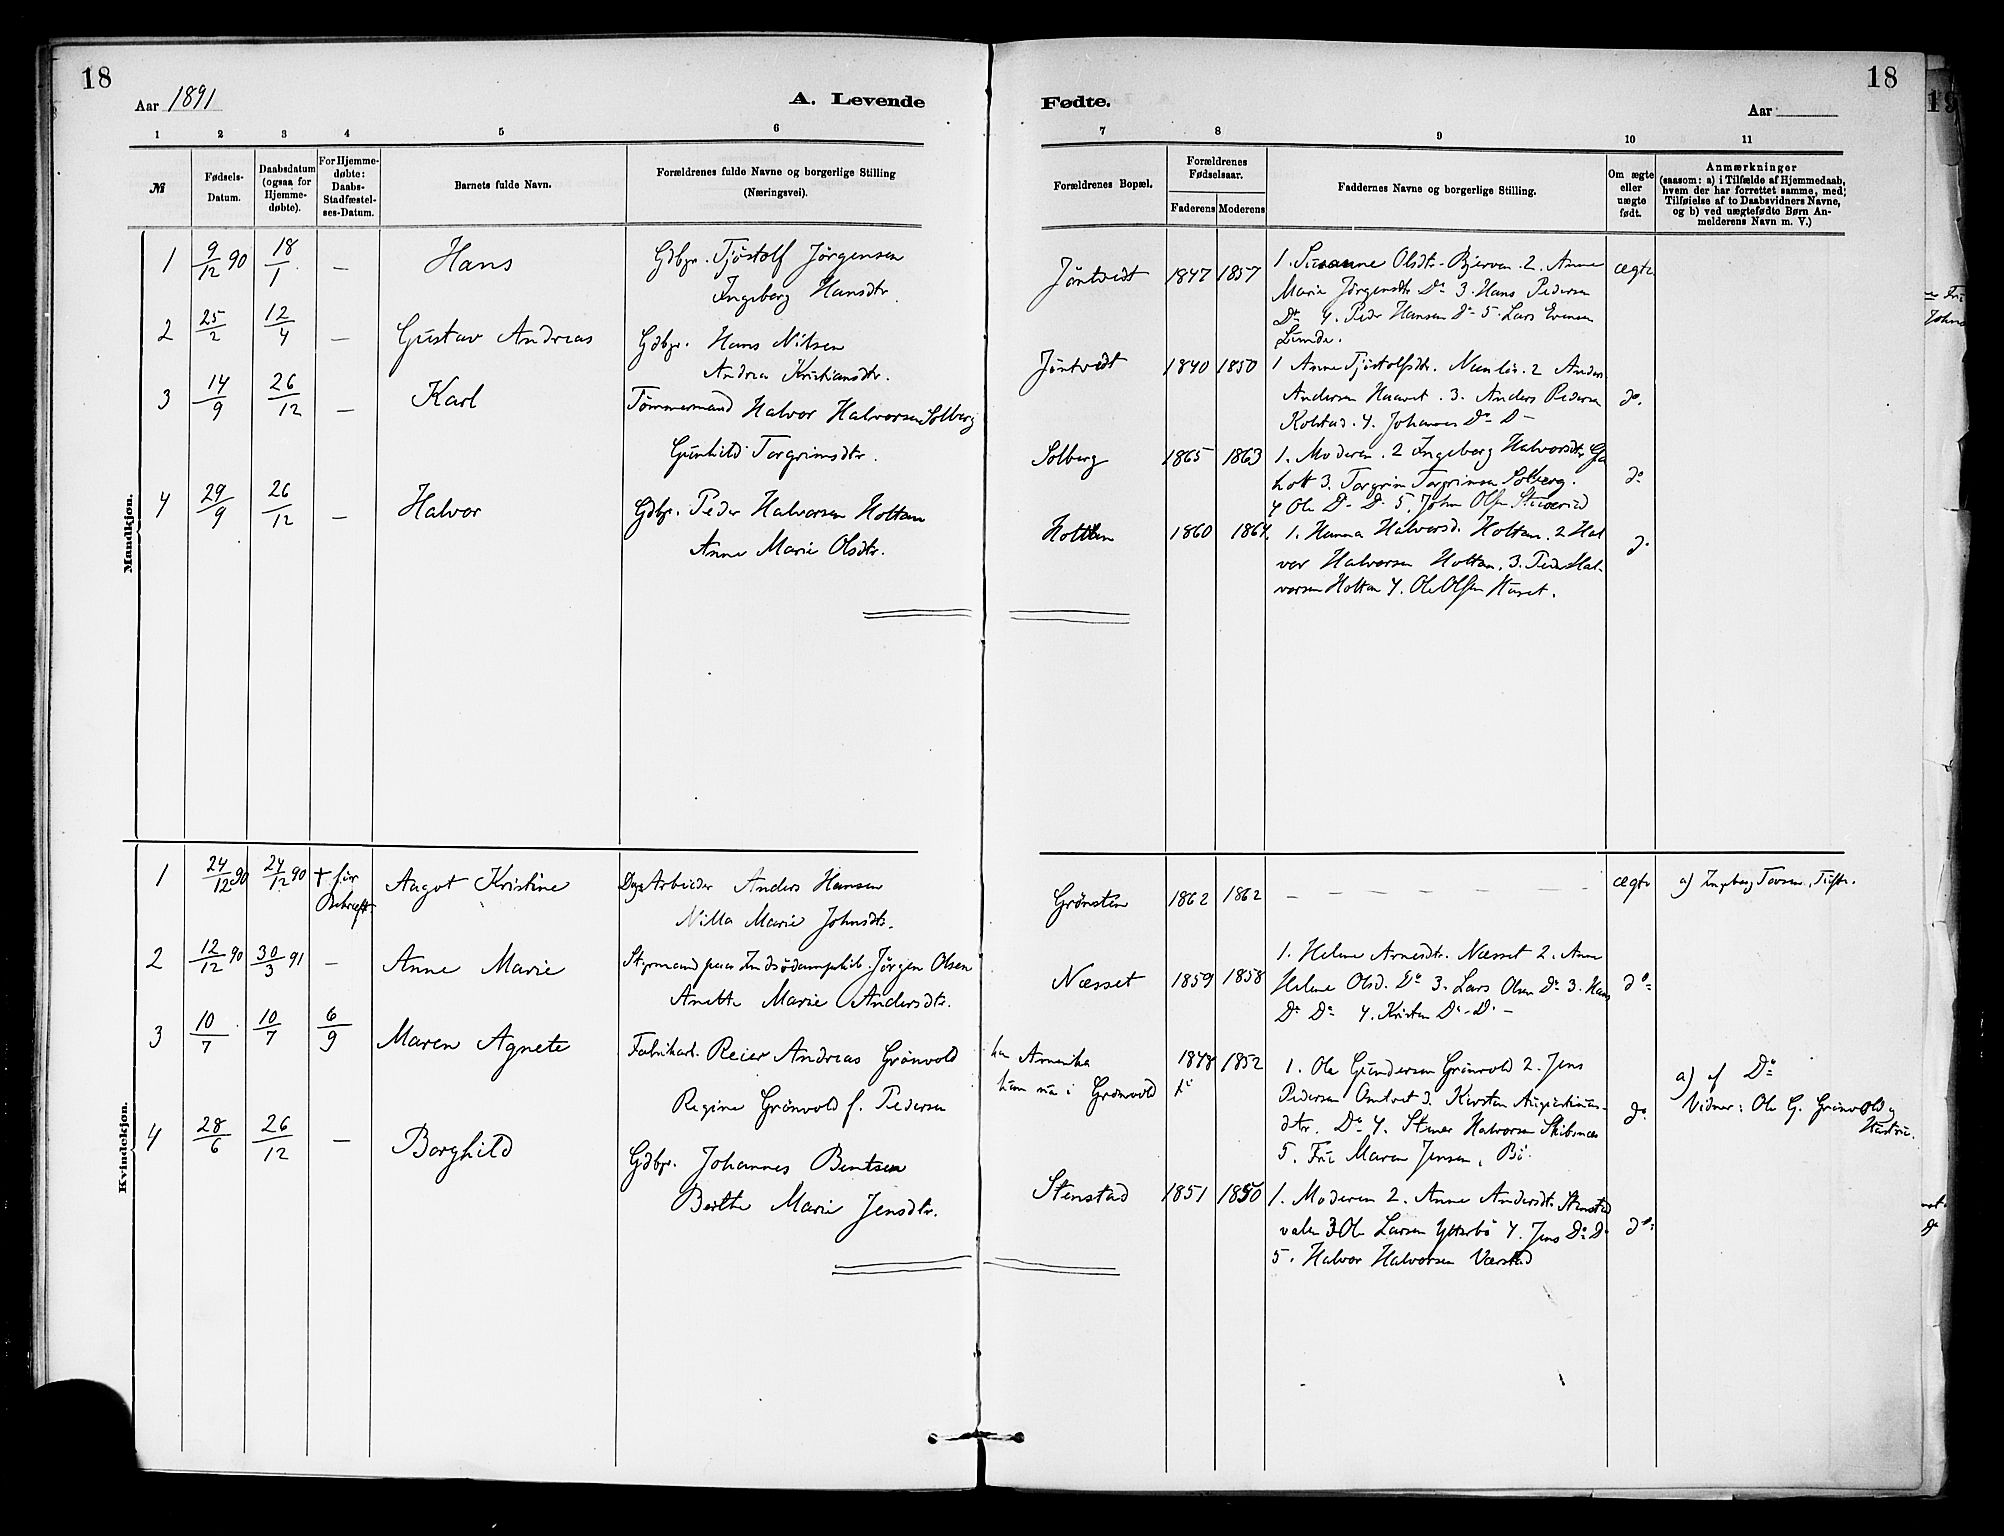 18
Aar 1891
A. Levende
1 2 3 4 5 6
№
Fødsels-Datum.
Daabsdatum (ogsaa for Hjemme-døbte).
For Hjemme-døbte: Daabs-Stadfæstel-ses-Datum.
Barnets fulde Navn.
Forældrenes fulde Navne og borgerlige Stilling (Næringsvei).
Mandkjøn.
1 9/12 90 18/1 — Hans Gdbgr. Tjøstolf Jørgensen
Ingeborg Hansdtr.
2 25/2 12/4 — Gustav Andreas Gdbgr. Hans Nilsen
Andrea Kristiansdtr.
3 14/9 26/12 — Karl Tømmermand Halvor Halvorsen Solberg
Gunhild Torgrimsdtr.
4 29/9 26/12 — Halvor Gdbgr. Peder Halvorsen Holtan
Anne Marie Olsdtr.
Kvindekjøn.
1 24/12 90 24/12 90 † før Bekræft. Aagot Kristine Dag Arbeider Anders Hansen
Nilla Marie Johnsdtr.
2 12/12 90 30/3 91 — Anne Marie Styrmand paa Jørgen Olsen
Anette Marie Andersdtr.
3 10/7 10/7 6/9 Maren Agnete Fabrikarb. Reier Andreas Grønvold
Regine Grønvold f. Pedersen
4 28/6 26/12 — Borghild Gdbgr. Johannes Bentsen
Berthe Marie Jensdtr.
18
Fødte.
Aar
7 8 9 10 11
Forældrenes Bopæl.
Forældrenes Fødselsaar.
Faderens Moderens
Faddernes Navne og borgerlige Stilling.
Om ægte eller uægte født.
Anmærkninger
(saasom: a) i Tilfælde af Hjemmedaab,
hvem der har forrettet samme, med
Tilføielse af to Daabsvidners Navne,
og b) ved uægtefødte Børn An-
melderens Navn m. V.)
Jøntvedt 1847 1857 1. Susanne Olsdtr. Bjerven. 2. Anne ægte
Marie Jørgensdtr. Do 3. Hans Pedersen
Do 4. Peder Hansen Do 5. Lars Evensen
Lunde.
Jøntvedt 1840 1850 1 Anne Tjøstolfsdtr. 2 Anders
Andersen Haavet. 3. Anders Pedersen do.
Kolstad. 4. Johannes Do D—
Solberg 1865 1863 1. Moderen. 2 Ingeborg Halvorsdtr.
3. Torgrim Torgrimsen Solberg. do
4 Ole D— D— 5. John Olsen
Holtan 1860 1864 1. Hanna Halvorsd. Holtan. 2 Hal
vor Halvorsen Holtan. 3. Peder Hal- do
vorsen Holtan 4. Ole Olsen
Grønsten 1862 1862 — — — — — — — ægte a) Ingeborg
Næsset 1859 1858 1. Helene Arnesdtr. Næsset 2. Anne
Helene Olsd. Do 3. Lars Olsen Do 3. Hans do
Do Do 4. Kristen Do D. —
Amerika 1848 1852 1. Ole Gundersen Grønvold 2. Jens
nu i Grønvold Pedersen 3. Kirsten
dtr. Do 4. Halvorsen do
5. Fru Maren Jensen, Bø.
a) af Do
Vidner: Ole G. Grønvold og
Hustru.
Stenstad 1851 1850 1. Moderen 2. Anne Andersdtr. Stenstad
valen 3 Ole Larsen Ytterbø 4. Jens Do D— do
5. Halvor Halvorsen